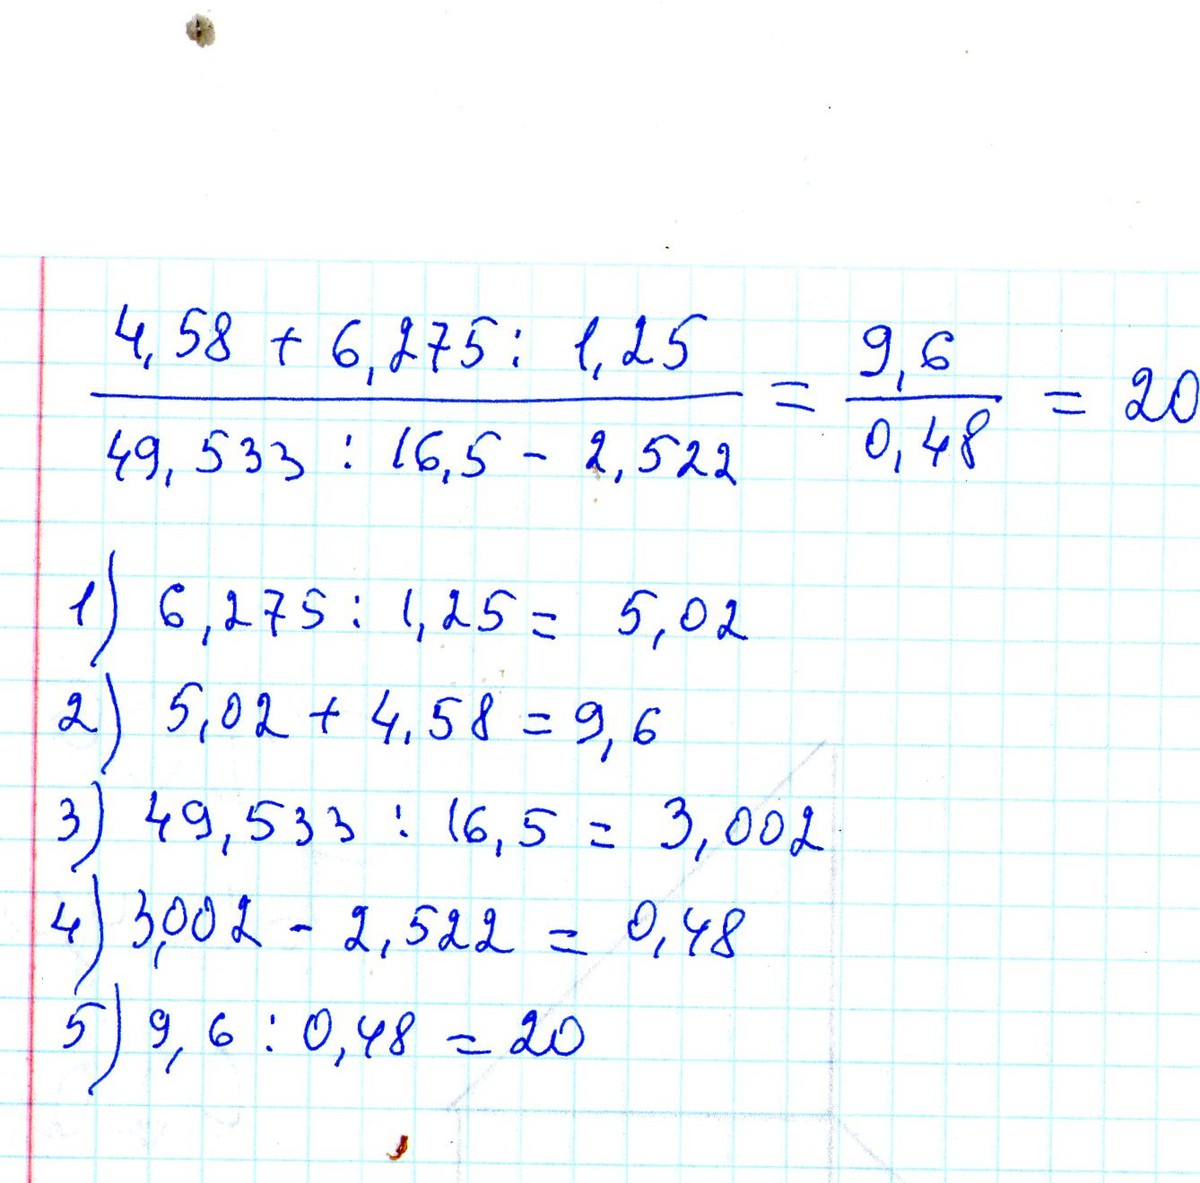 4,58 + 6,275 : 1,25
49,533 : 16,5 - 2,522
= 9,6
0,48
= 20
1) 6,275 : 1,25 = 5,02
2) 5,02 + 4,58 = 9,6
3) 49,533 : 16,5 = 3,002
4) 3,002 - 2,522 = 0,48
5) 9,6 : 0,48 = 20